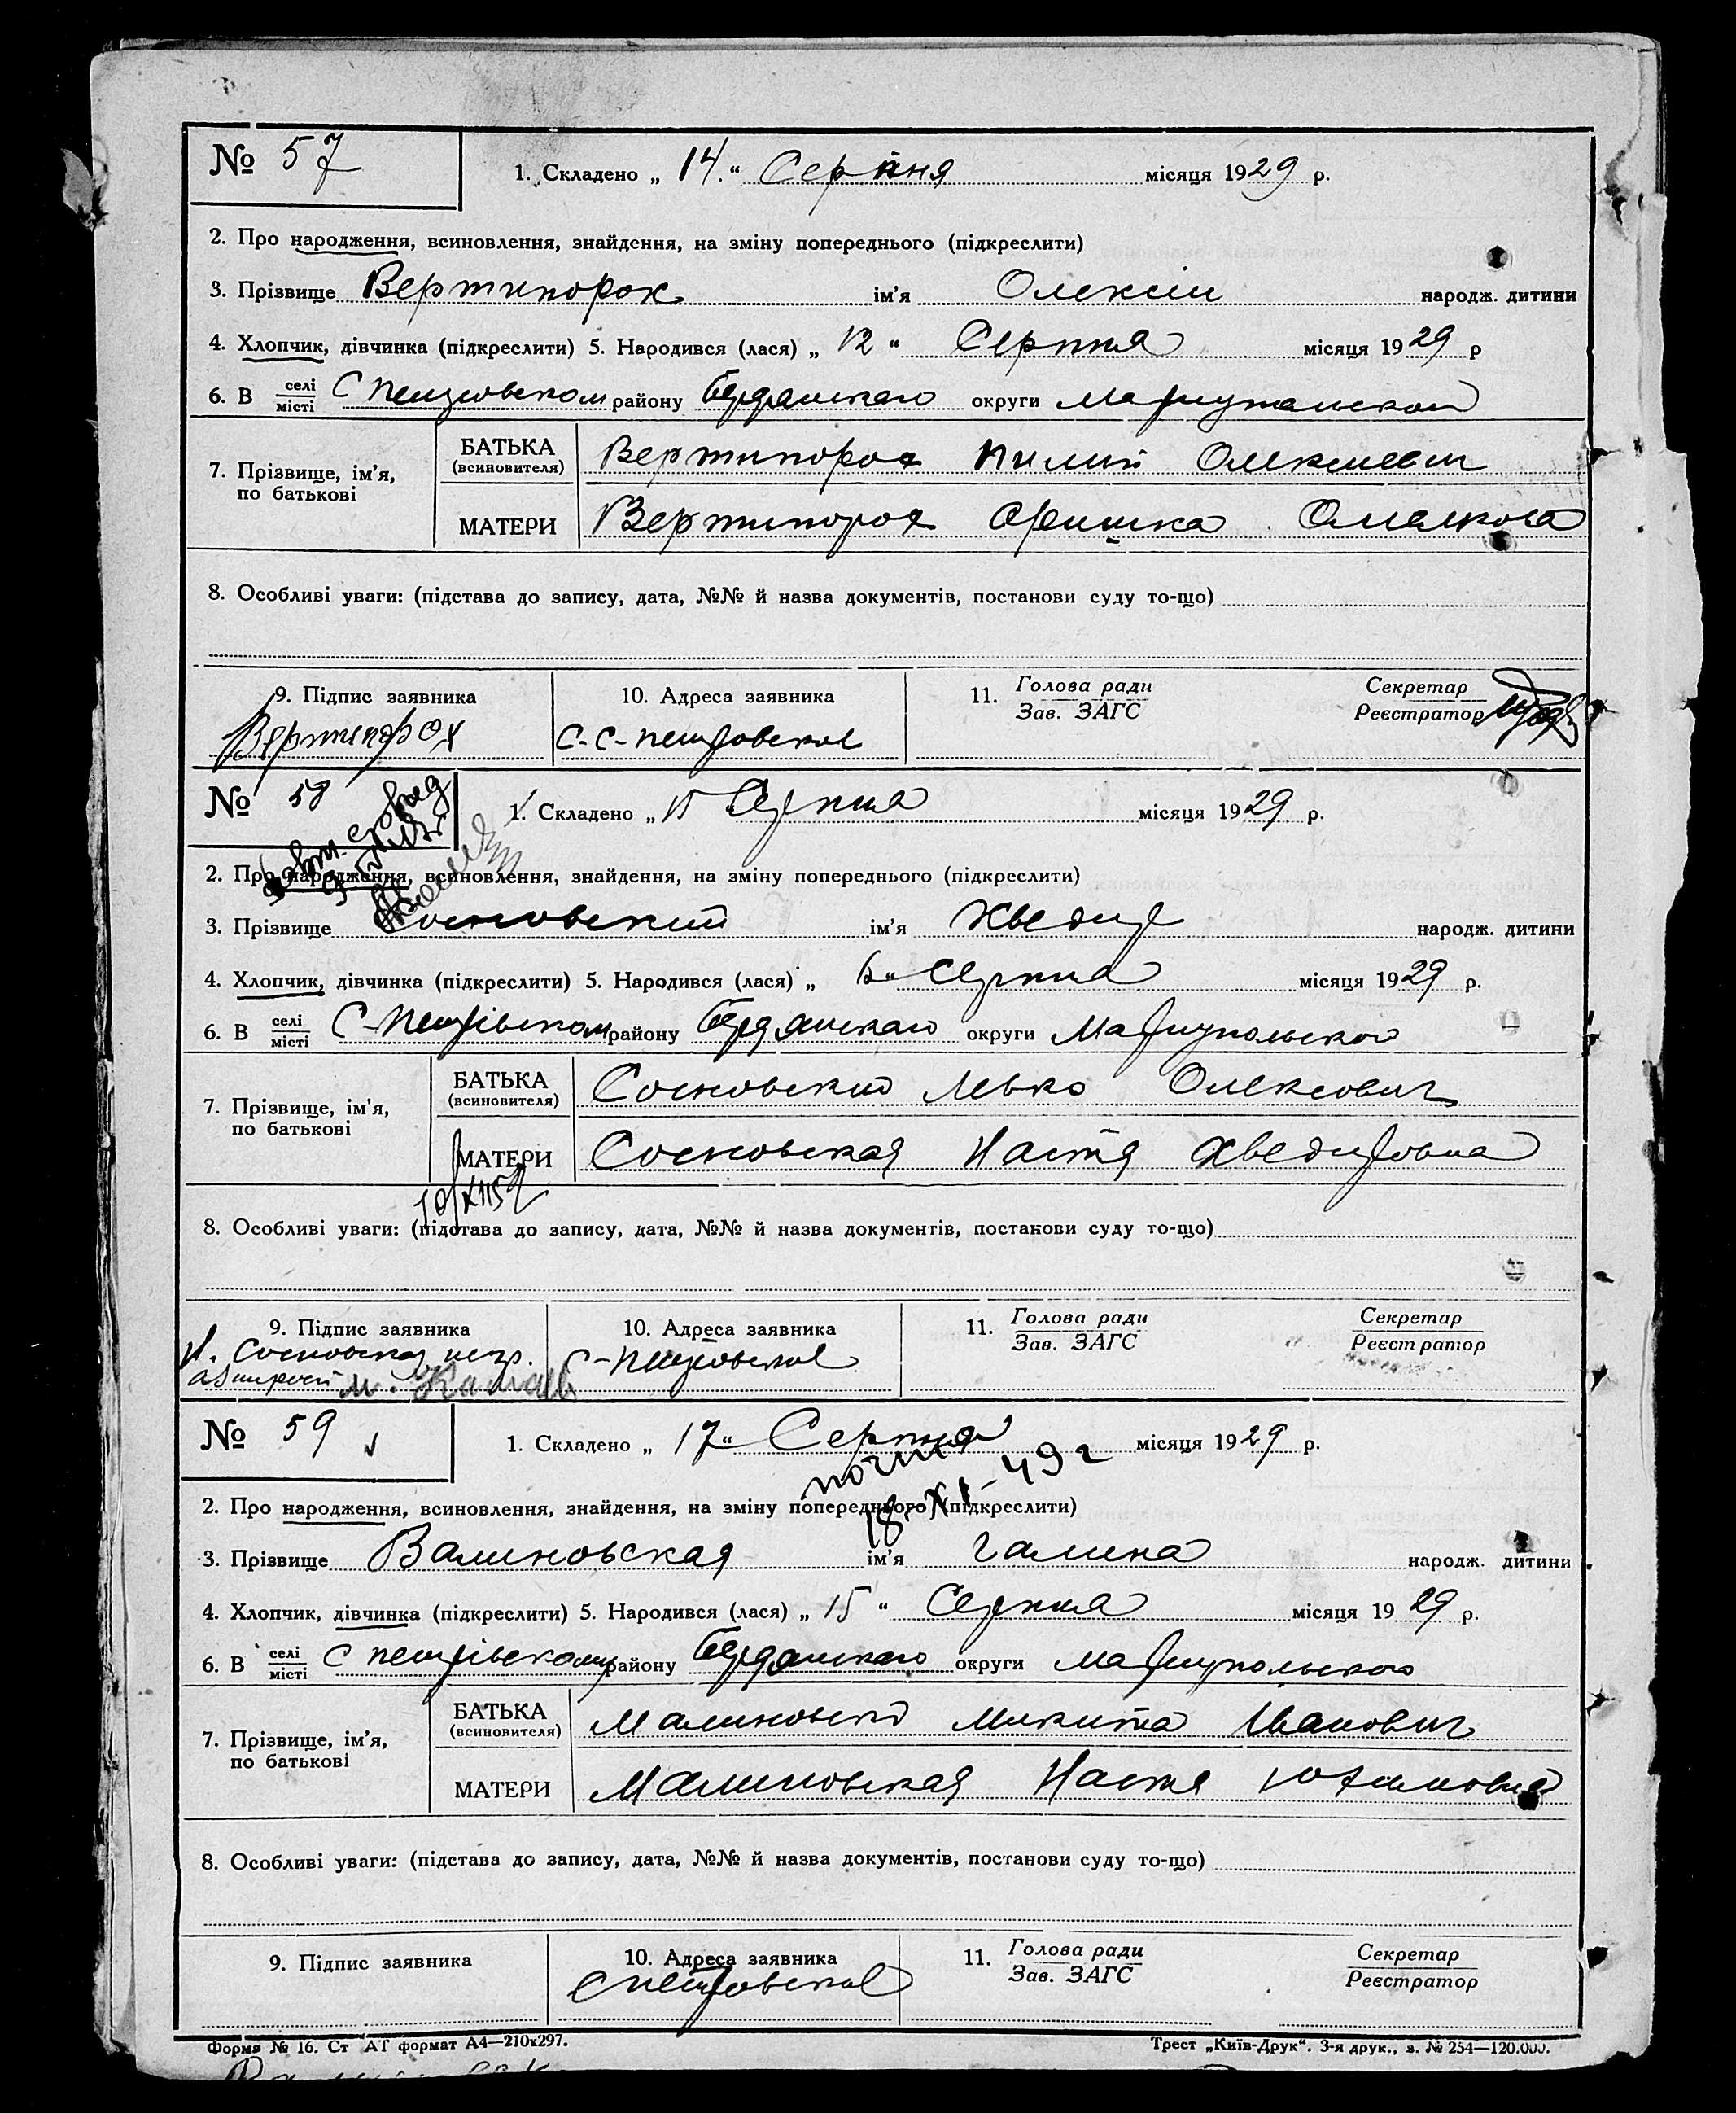 № 57
1. Складено „ 14 “ Серпня місяця 1929 р.
2. Про народження, всиновлення, знайдення, на зміну попереднього (підкреслити)
3. Прізвище Вертипорох ім'я Олексій народж. дитини
4. Хлопчик, дівчинка (підкреслити) 5. Народився (лася) „ 12 “ Серпня місяця 1929 р
6. В селі/місті С Петровском району Бердянскаго округи Мариупольской
7. Прізвище, ім'я, по батькові
БАТЬКА (всиновителя) Вертипорох Пилип Олексиевич
МАТЕРИ Вертипорох Оришка
8. Особливі уваги: (підстава до запису, дата, №№ й назва документів, постанови суду то-що)
9. Підпис заявника 10. Адреса заявника 11. Голова ради Секретар
Зав. ЗАГС Реєстратор
Вертипорох С-С-Петровское
№ 58
1. Складено „ 15 “ Серпня місяця 1929 р.
2. Про народження, всиновлення, знайдення, на зміну попереднього (підкреслити)
3. Прізвище Сосновский ім'я Хведир народж. дитини
4. Хлопчик, дівчинка (підкреслити) 5. Народився (лася) „ 6 “ Серпня місяця 1929 р.
6. В селі/місті С-Петрівском району Бердянскаго округи Мариупольского
7. Прізвище, ім'я, по батькові
БАТЬКА (всиновителя) Сосновский Левко Олексович
МАТЕРИ Сосновская Настя Хведировна
8. Особливі уваги: (підстава до запису, дата, №№ й назва документів, постанови суду то-що)
9. Підпис заявника 10. Адреса заявника 11. Голова ради Секретар
Зав. ЗАГС Реєстратор
Н. Сосновская негр. С-Петровское
№ 59
1. Складено „ 17 “ Серпня місяця 1929 р.
почта
18-XI-49 г
2. Про народження, всиновлення, знайдення, на зміну попереднього (підкреслити)
3. Прізвище Валиновская ім'я Галина народж. дитини
4. Хлопчик, дівчинка (підкреслити) 5. Народився (лася) „ 15 “ Серпня місяця 1929 р.
6. В селі/місті С Петрівському району Бердянскаго округи Мариупольского
7. Прізвище, ім'я, по батькові
БАТЬКА (всиновителя) Малиновский Микита Иванович
МАТЕРИ Малиновская Настя
8. Особливі уваги: (підстава до запису, дата, №№ й назва документів, постанови суду то-що)
9. Підпис заявника 10. Адреса заявника 11. Голова ради Секретар
Зав. ЗАГС Реєстратор
С Петровское
Форма № 16. Ст АТ формат А4—210х297. Трест „Київ-Друк“. 3-я друк., з. № 254—120.000.